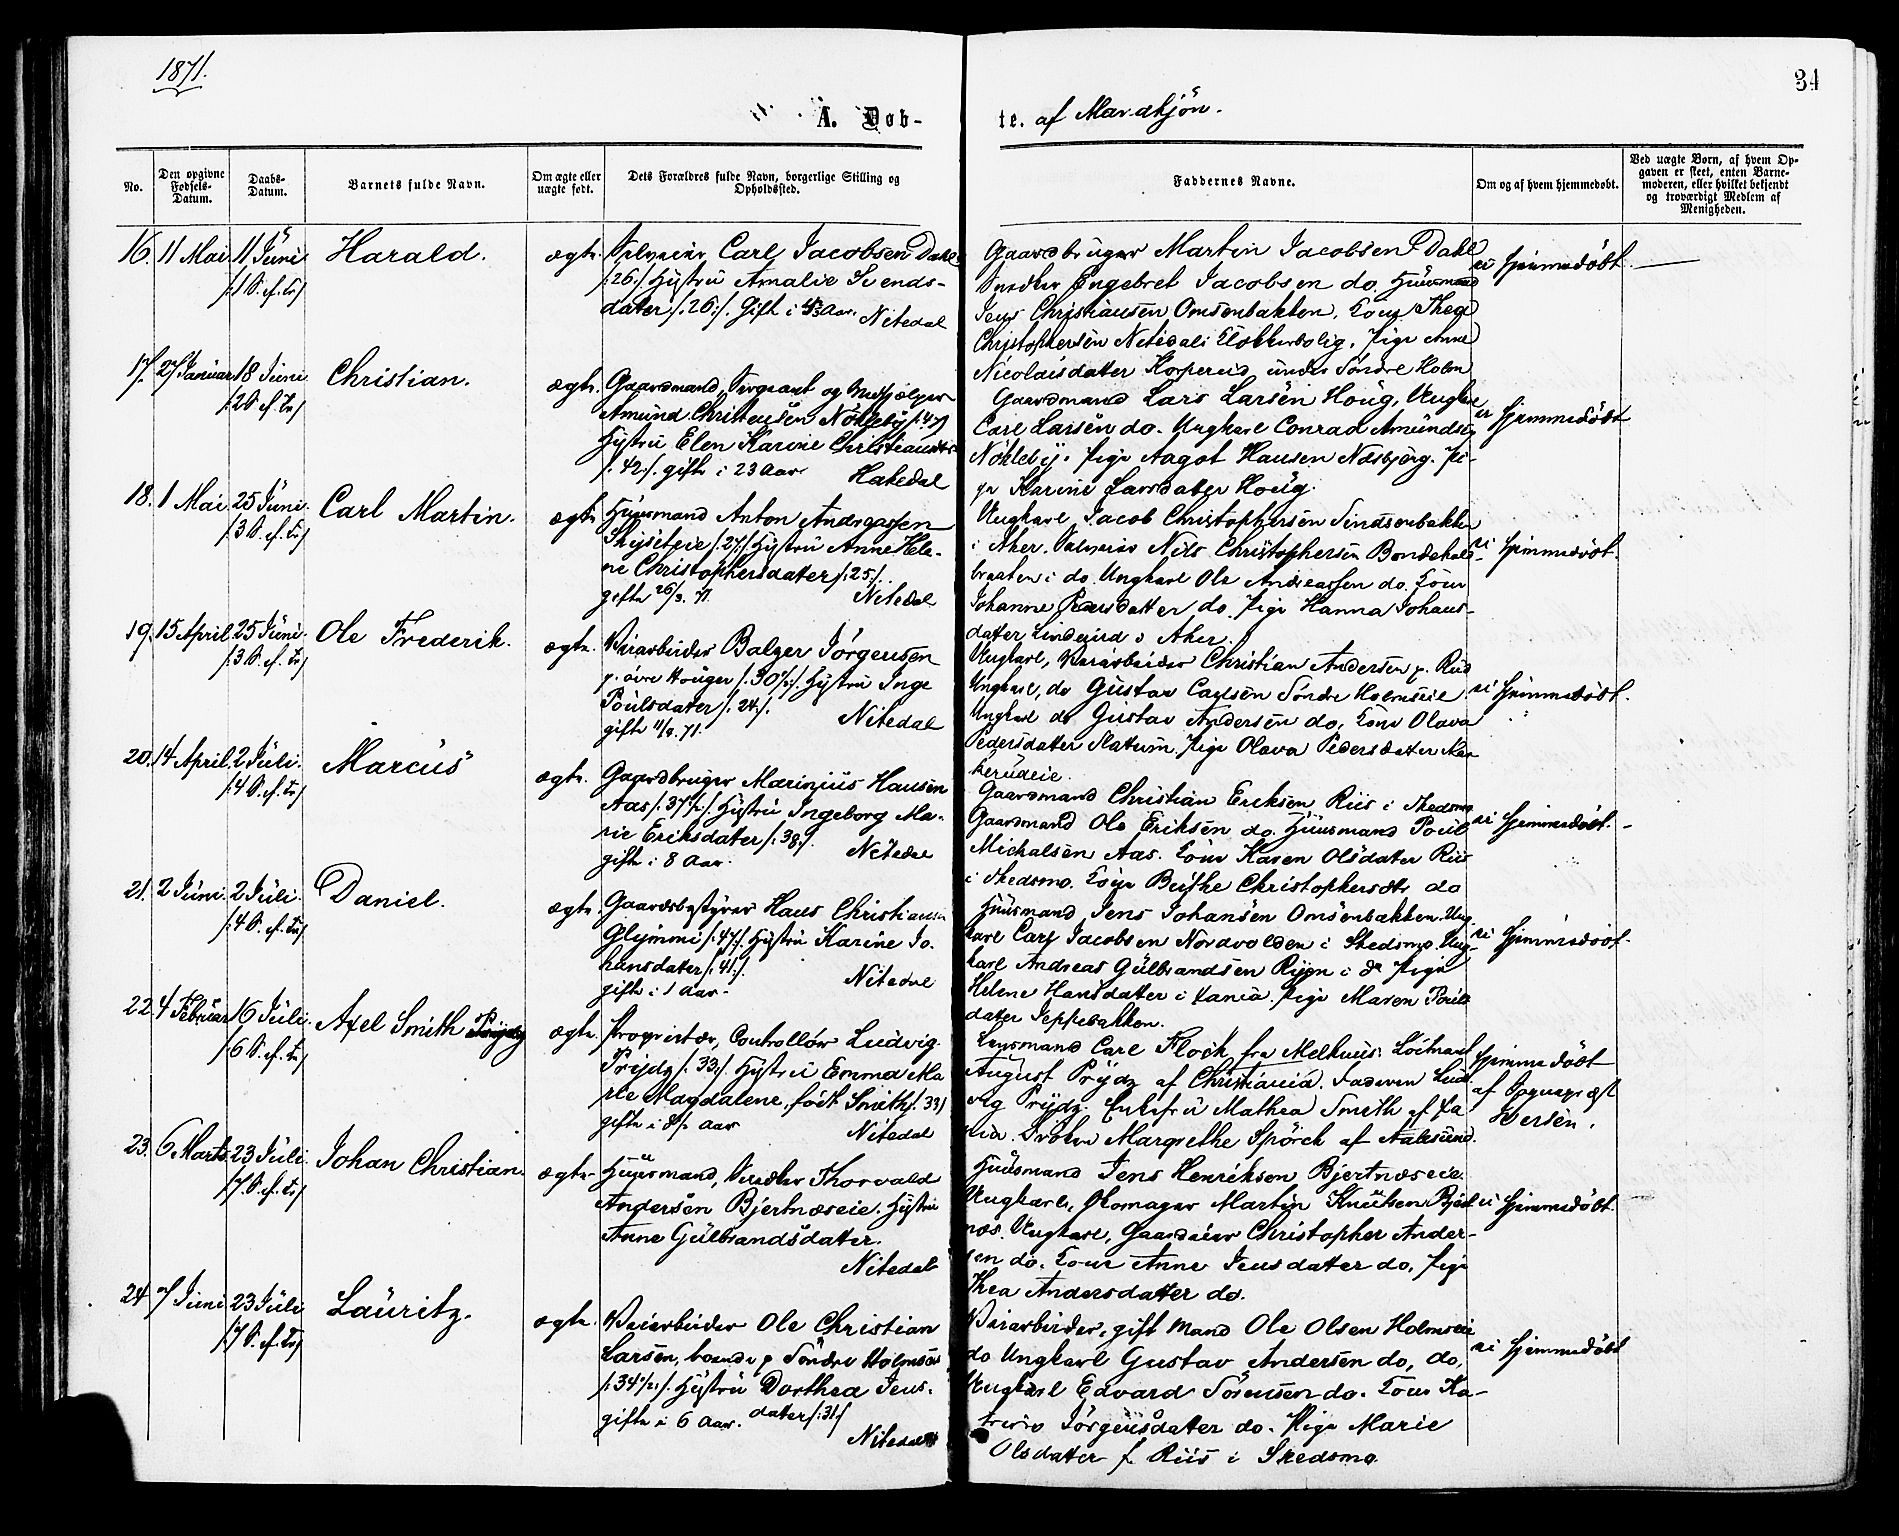 1871.
34
A. Døb-
te. af Mandkjön.
No.
Den opgivne Fødsels-Datum.
Daabs-Datum.
Barnets fulde Navn.
Om ægte eller uægte født.
Dets Forældres fulde Navn, borgerlige Stilling og Opholdssted.
Faddernes Navne.
Om og af hvem hjemmedøbt.
Ved uægte Børn, af hvem Opgaven er skeet, enten Barnemoderen, eller hvilket bekjendt og troværdigt Medlem af Menigheden.
16. 11 Mai 11 Juni Harald. ægte. Carl Jacobsen Dahl
/:26:/ Hystru Amalie Svends-
dater /:26:/. Gift i Aar. Nitedal
Gaardbruger Martin Jacobsen Dahl
Engebret Jacobsen do. Huusmand
Jens Christiansen Omsenbakken. Kone Thea
Christophersen Nitedals Klokkerbolig. Pige Anne
Nicolaisdater Korperud under Söndre Holm
ei hjemmedöbt.
17. 27 Januar 18 Juni Christian. ægte. Gaardmand, Sergeant og Medhjelper
Amund Christensen Nökleby /:47/
Hystru Elen Karine Christiansdtr
/:42:/. gifte i 23 Aar. Hakedal
Gaardmand Lars Larsen Houg, Ungkarl
Carl Larsen do. Ungkarl Conrad Amundsen
Nökleby. Pige Aagot Hansen Næsbjerg. Pi-
ge Karine Larsdater Houg.
er hjemmedöbt
18. 1 Mai 25 Juni Carl Martin. ægte Huusmand Anton Andreassen
/:27:/ Hystru Anne Hele-
ne Christophersdater /:25:/.
gifte 26/3. 71. Nitedal
Ungkarl Jacob Christophersen Sindsenbakken
i Aker. Nils Christophersen
braaten i do. Ungkarl Ole Andreassen do. Kone
Johanne Pedersdatter do. Pige Hanna Johans-
datter Linderud i Aker.
ei hjemmedöbt.
19. 15 April 25 Juni Ole Frederik. ægte. Veiarbeider Balzer Jörgensen
p. övre Houger /:30½:/. Hystru Inge
Poulsdater /:24:/.
gifte 71. Nitedal
Ungkarl, Veiarbeider Christian Andersen p. Rud
Ungkarl, do Gustav Carlsen Söndre Holmseie
Ungkarl do Gustav Andersen do, Kone Olava
Pedersdatter Slatum. Pige Olava Pedersdatter
kerudeie.
ei hjemmedöbt.
20. 14 April 2 Juli. Marcus ægte. Gaardbruger Marinius Hansen
Aas /:37½:/. Hystru Ingeborg Ma-
rie Eriksdater /:38:/.
gifte i 8 Aar. Nitedal
Gaardmand Christian Eriksen Riis i Skedsmo
Gaardmand Ole Eriksen do. Huusmand Poul
Michalsen Aas. Kone Karen Olsdater Riis
i Skedsmo. Kone Berthe Christophersdtr do
ei hjemmedöbt.
21. 2 Juni. 2 Juli. Daniel. ægte. Gaardsbestyrer Hans Christiansen
Glymmi /:47:/. Hystru Karine Jo-
hansdater /:41:/.
gifte i 1 Aar. Nitedal
Huusmand Jens Johansen Omsenbakken. Ung-
karl Carl Jacobsen Nordvolden i Skedsmo. Ung-
karl Andreas Gulbrandsen Ryen i do Pige
Helene Hansdatter i Pige Maren Pouls-
dater Jeppebakken.
ei hjemmedöbt.
22. 4 Februar 16 Juli. Axel Smith ægte. Proprietær, Controllör Ludvig
Prydz /:33:/. Hystru Emma Ma
rie Magdalene, född Smith /:33/
gifte i Aar Nitedal
Lensmand Carl Flock fra Melhuus. Löitnant
August Prydz af Christiania. Faderen Lud
vig Prydz. Enkefru Mathea Smith af
Fröken Margrethe Spörck af Aalesund.
hjemmedöbt
af Sognepræst
Iversen.
23. 6 Marts 23 Juli Johan Christian. ægte. Huusmand, Snedker Thorvald
Andersen Bjertnæseie. Hystru
Anne Gulbrandsdatter.
Nitedal
Huusmand Jens Henriksen Bjertnæseie.
Ungkarl, Skomager Martin Knutsen Bjert-
næs. Ungkarl, Gaardeier Christopher Ander-
sen do. Kone Anne Jensdatter do, Pige
Thea Andersdatter do.
ei hjemmedöbt.
24. 7 Juni 23 Juli Lauritz. ægte. Veiarbeider Ole Christian
Larsen, boende p Söndre Holmseie
/:34½:/. Hystru Dorthea Jens-
gifte i 6 Aar. dater /:31/
Nitedal
Veiarbeider, gift Mand Ole Olsen Holmseie
do Ungkarl Gustav Andersen do, do,
Ungkarl Edvard Sörensen do. Kone Ka-
trine Jörgensdater do. Pige Marie
Olsdatter f. Riis i Skedsmo
ei hjemmedöbt